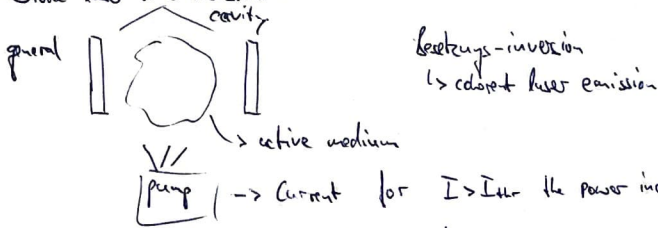 cavity
general
Besetzungs-inversion
↳ coherent laser emission
-> active medium
pump -> Current for I > I_thr the power inc